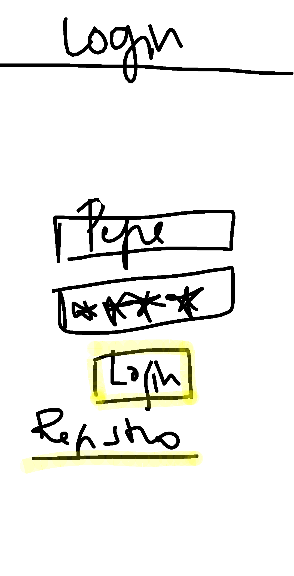 Login
Pepe
****
Login
Registro